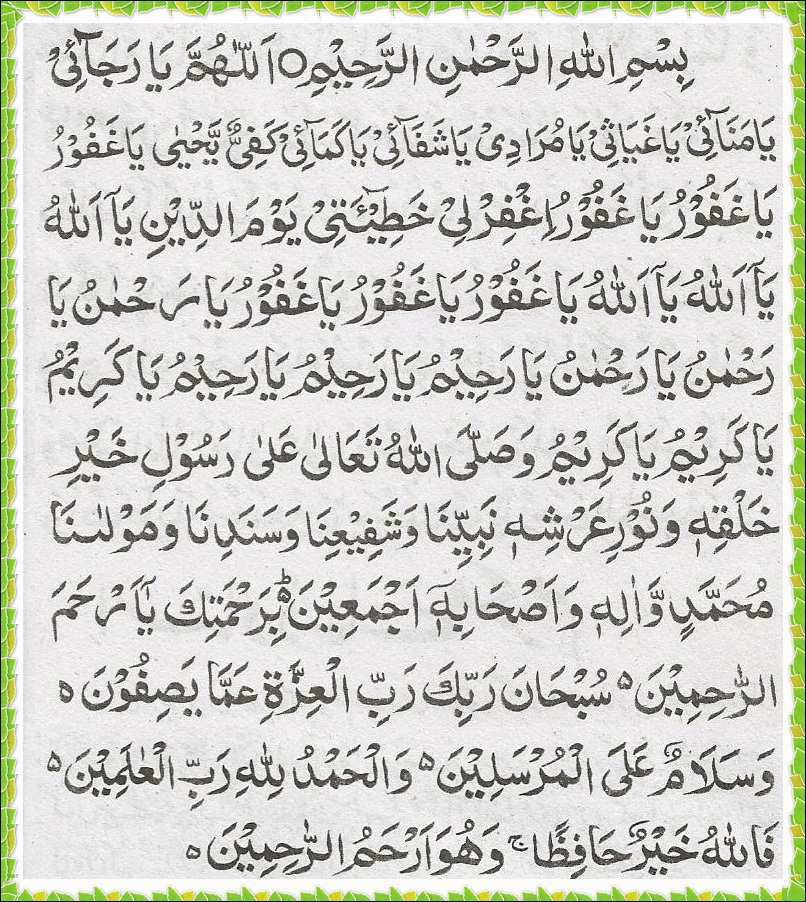 بِسْمِ اللّٰهِ الرَّحْمٰنِ الرَّحِيْمِ ○ اَللّٰهُمَّ يَا رَجَآئِىْ
يَا مَنَآئِىْ يَا غَيَاثِىْ يَا مُرَادِىْ يَا شَفَآئِىْ يَا كَمَآئِىْ كَفِىٌّ يَّحْيٰى يَا غَفُوْرُ
يَا غَفُوْرُ يَا غَفُوْرُ اِغْفِرْ لِىْ خَطِيْٓئَتِىْ يَوْمَ الدِّيْنِ يَآ اَللّٰهُ
يَآ اَللّٰهُ يَآ اَللّٰهُ يَا غَفُوْرُ يَا غَفُوْرُ يَا غَفُوْرُ يَا رَحْمٰنُ يَا
رَحْمٰنُ يَا رَحْمٰنُ يَا رَحِيْمُ يَا رَحِيْمُ يَا رَحِيْمُ يَا كَرِيْمُ
يَا كَرِيْمُ يَا كَرِيْمُ وَصَلَّى اللّٰهُ تَعَالٰى عَلٰى رَسُوْلِ خَيْرِ
خَلْقِهٖ وَنُوْرِ عَرْشِهٖ نَبِيِّنَا وَشَفِيْعِنَا وَسَنَدِنَا وَمَوْلٰىنَا
مُحَمَّدٍ وَّاٰلِهٖ وَاَصْحَابِهٖٓ اَجْمَعِيْنَ ؕ بِرَحْمَتِكَ يَآ اَرْحَمَ
الرّٰحِمِيْنَ ۵ سُبْحَانَ رَبِّكَ رَبِّ الْعِزَّةِ عَمَّا يَصِفُوْنَ ه
وَسَلَامٌ عَلَى الْمُرْسَلِيْنَ ۵ وَالْحَمْدُ لِلّٰهِ رَبِّ الْعٰلَمِيْنَ ۵
فَاللّٰهُ خَيْرٌ حَافِظًا ج وَهُوَ اَرْحَمُ الرّٰحِمِيْنَ ه